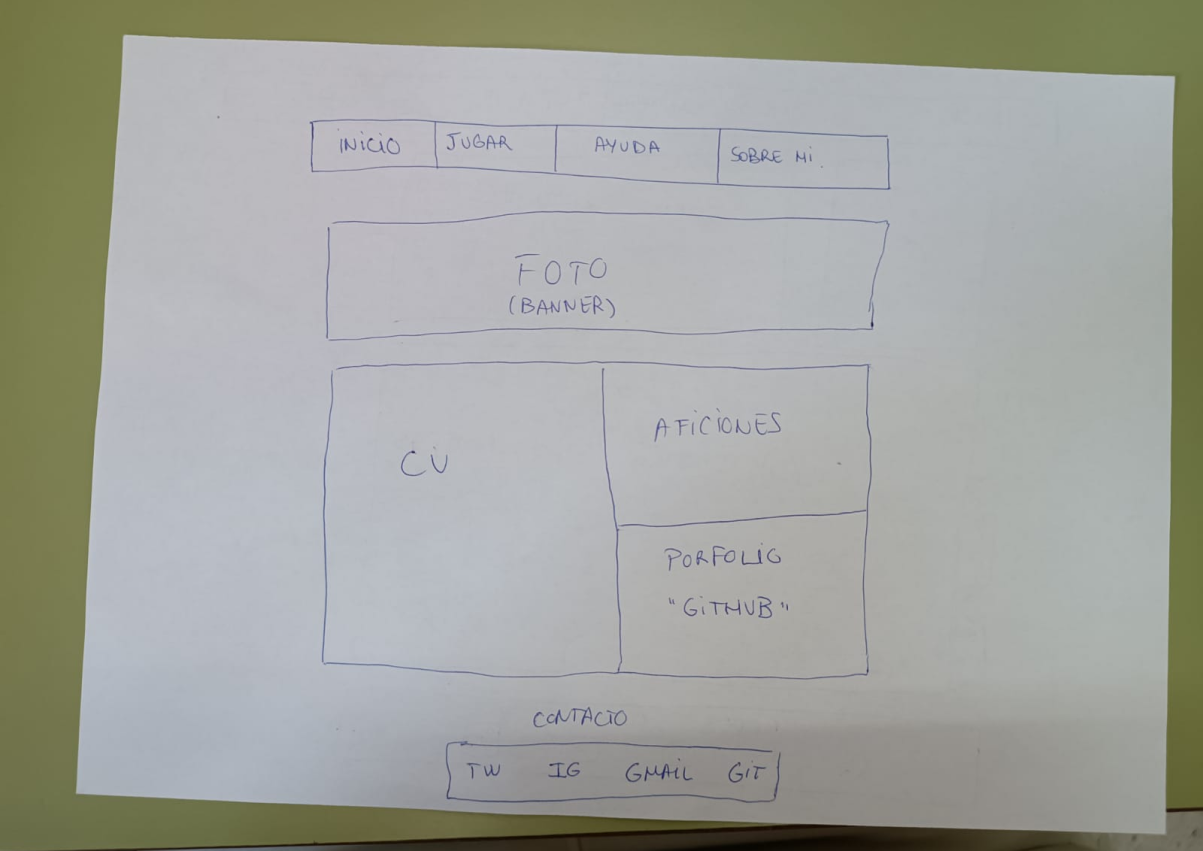 INICIO
JUGAR
AYUDA
SOBRE MI.
FOTO
(BANNER)
CV
AFICIONES
PORFOLIO
"GITHUB"
CONTACTO
TW IG GMAIL GIT